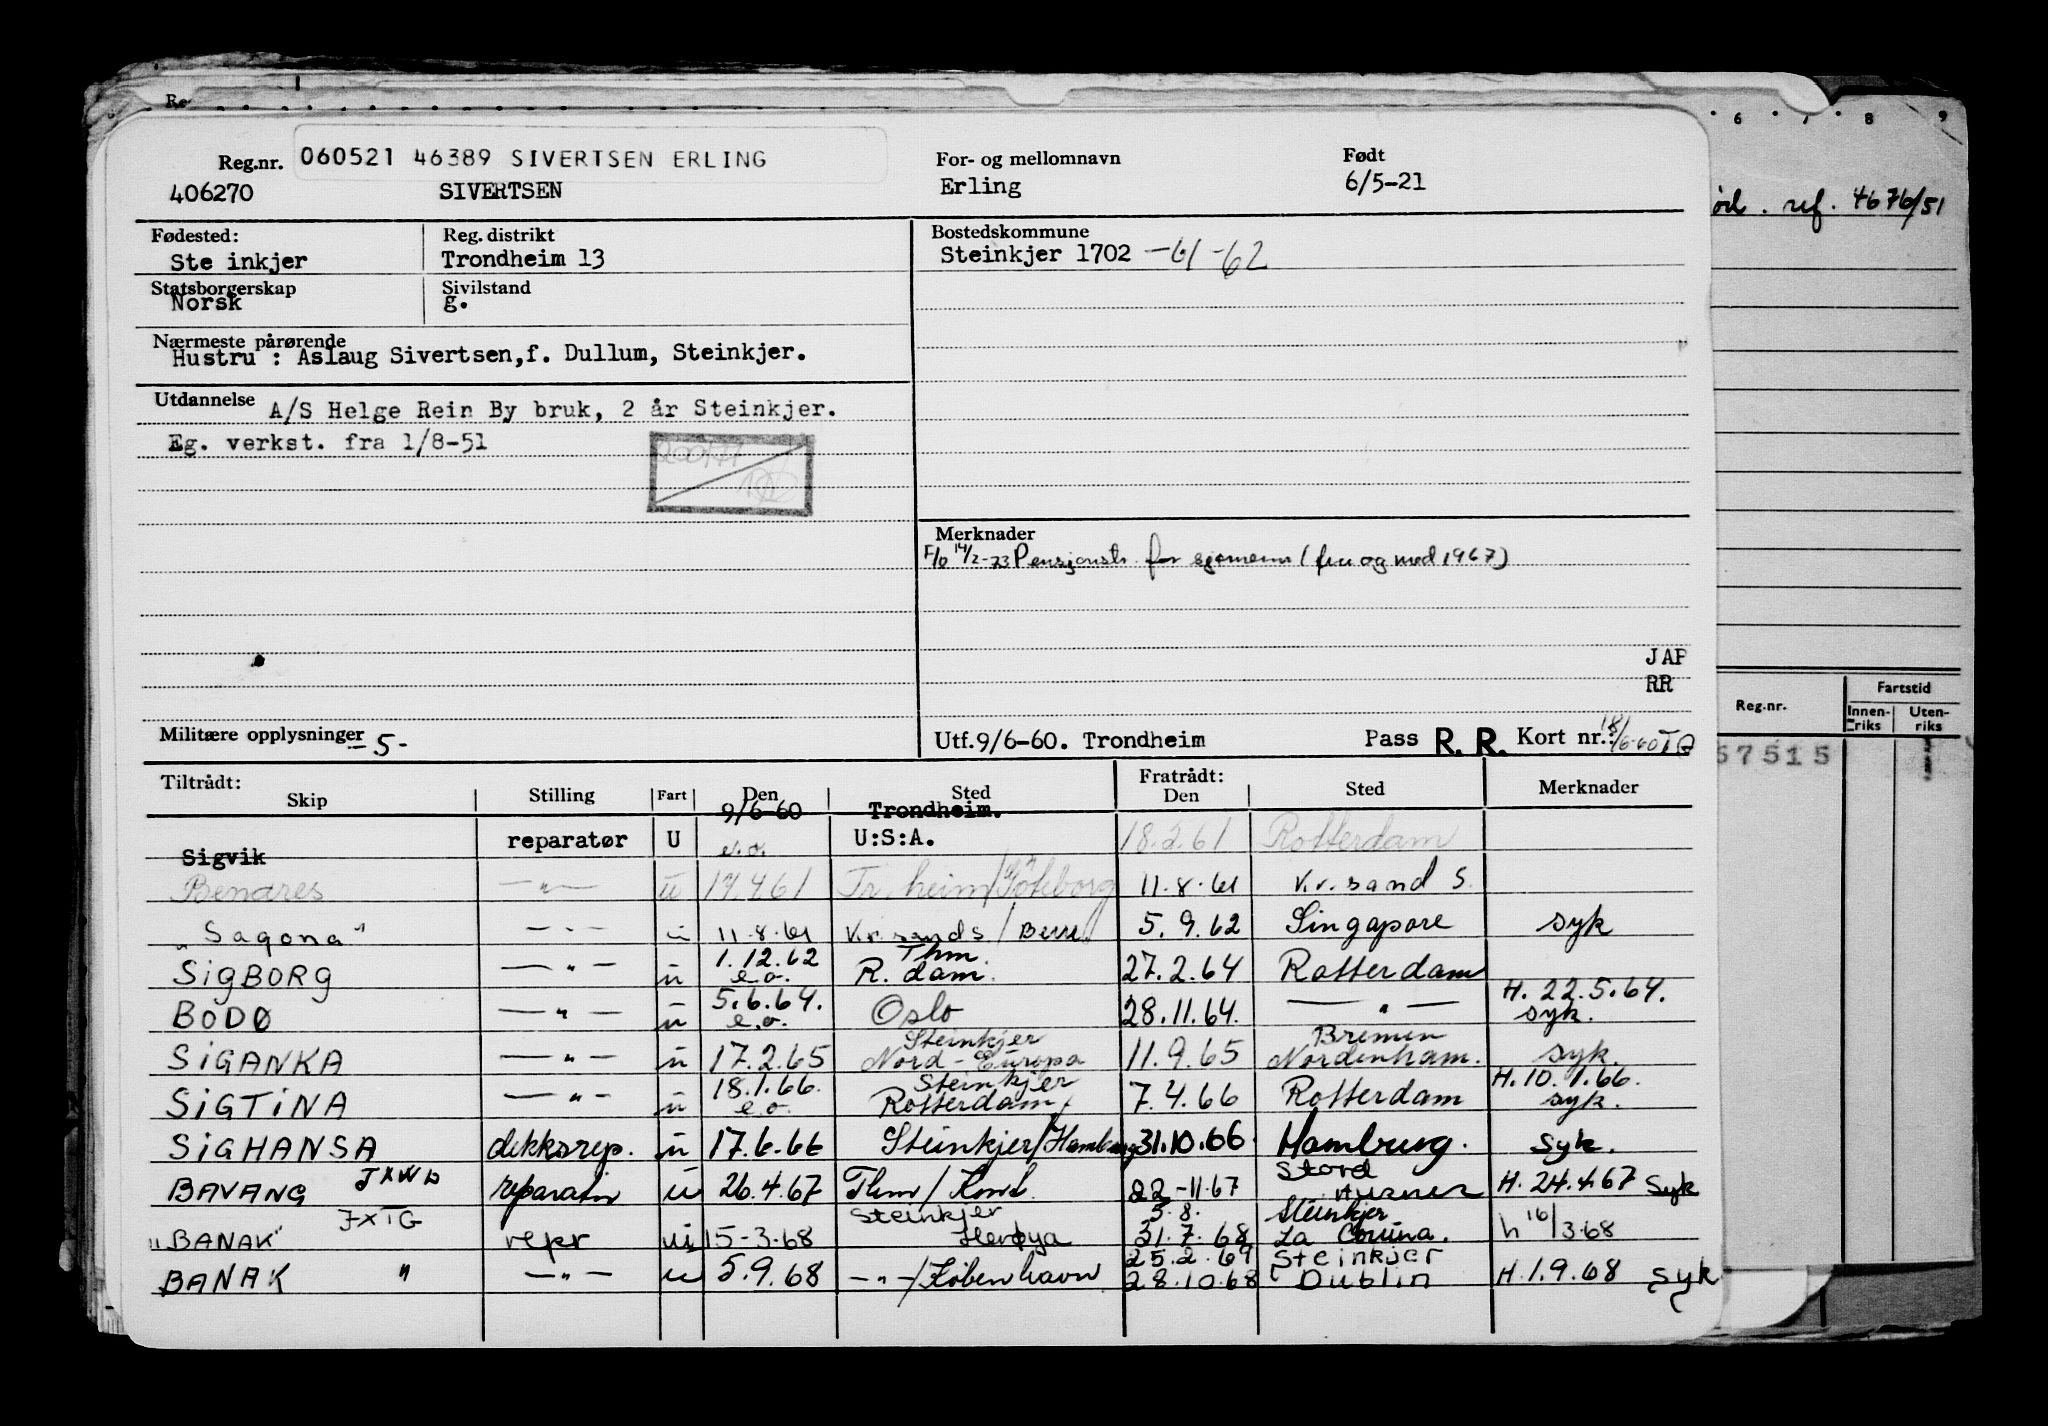 Re
6 7 8 9
Reg.nr. 060521 46389 SIVERTSEN ERLING For- og mellomnavn Født
406270 SIVERTSEN Erling 6/5-21
ref. 4676/51
Fødested: Reg. distrikt Bostedskommune
Ste inkjer Trondheim 13 Steinkjer 1702 -61-62
Statsborgerskap Sivilstand
Norsk g.
Nærmeste pårørende
Hustru : Aslaug Sivertsen,f. Dullum, Steinkjer.
Utdannelse A/S Helge Rein By bruk, 2 år Steinkjer.
Eg. verkst. fra 1/8-51
Merknader
F/o 14/2-73 Pensjonstr. for sjømenn (fra og med 1967)
JAP
RR
Reg.nr. Fartstid
Innen-riks Uten-riks
57515
Militære opplysninger -5- Utf.9/6-60. Trondheim Pass R. R. Kort nr.: 18/6-60
Tiltrådt: Fratrådt:
Skip Stilling Fart Den Sted Den Sted Merknader
9/6-60 Trondheim.
Sigvik reparatør U e.o. U:S:A. 18.2.61 Rotterdam
Benares -"- u 17.4.61 Tr.heim/Göteborg 11.8.61 Kr.sand S.
"Sagona" -"- u 11.8.61 Kr.sand S./ 5.9.62 Singapore syk
1.12.62 Thm.
SIGBORG -"- u e.o. R.dam. 27.2.64 Rotterdam
5.6.64. H. 22.5.64.
BODØ -"- u e.o. Oslo 28.11.64. -"- syk.
Steinkjer Bremen
SIGANKA -"- u 17.2.65 Nord-Europa 11.9.65 Nordenham. syk.
18.1.66. Steinkjer H. 10.1.66.
SIGTINA -"- u e.o. Rotterdam/ 7.4.66 Rotterdam syk.
SIGHANSA dekksrep. u 17.6.66 Steinkjer/Hamburg 31.10.66 Hamburg. syk.
Stord
BAVANG JXWD reparatør u 26.4.67 Thm/ 22-11.67 H. 24.4.67 syk
Steinkjer 5.8. Steinkjer
"BANAK" JXTG repr u 15-3.68 Herøya 31.7.68 La Coruna. h 16/3.68
25.2.69 Steinkjer
BANAK " -"- u 5.9.68 -"-/København 28.10.68 Dublin H.1.9.68 syk